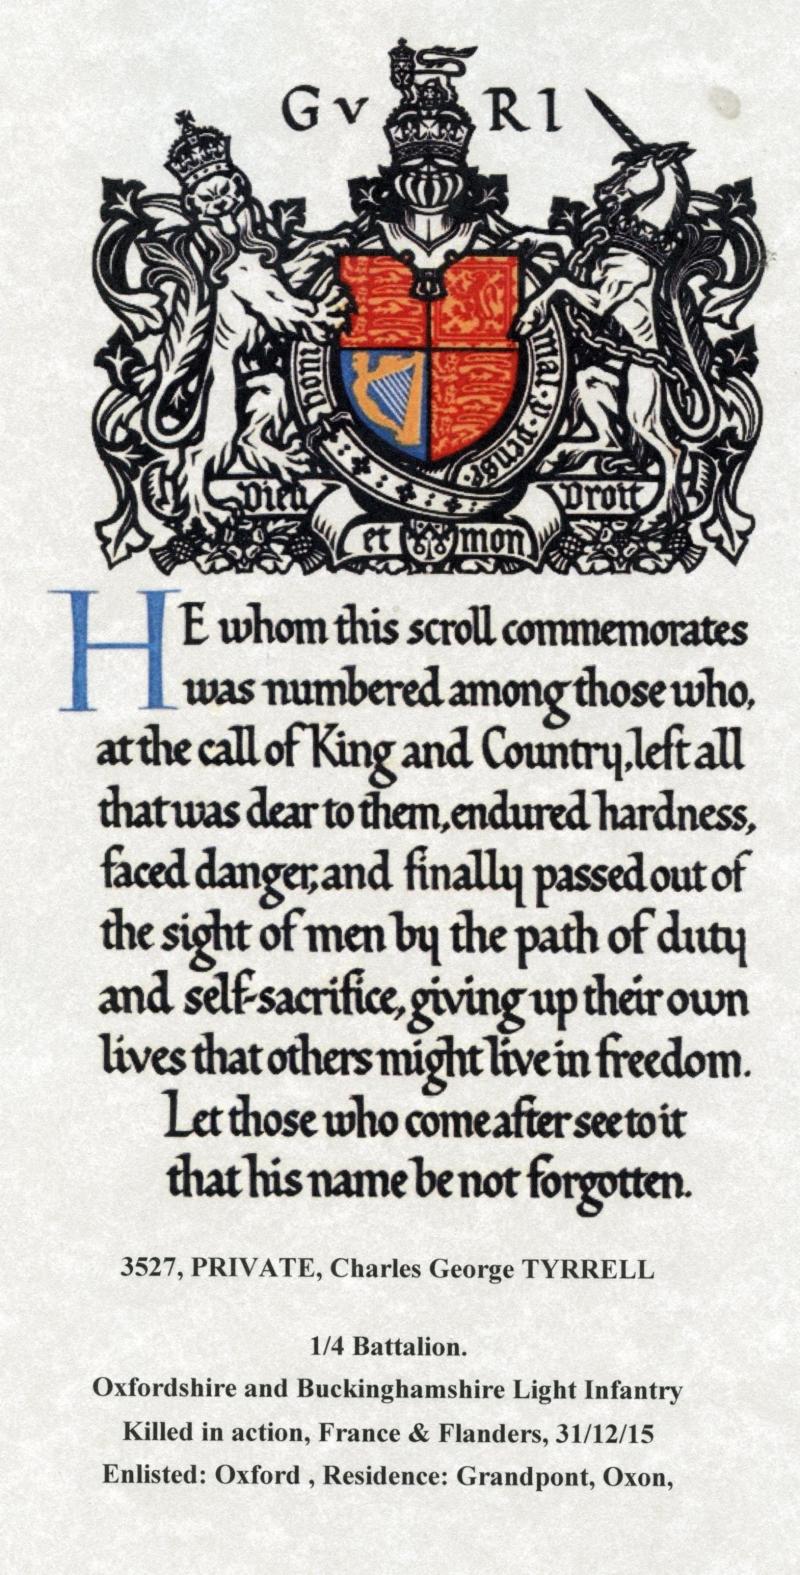 G V R I
honi
mal·y·pense·
Dieu
Droit
et mon
HE whom this scroll commemorates
was numbered among those who,
at the call of King and Country, left all
that was dear to them, endured hardness,
faced danger, and finally passed out of
the sight of men by the path of duty
and self-sacrifice, giving up their own
lives that others might live in freedom.
Let those who come after see to it
that his name be not forgotten.
3527, PRIVATE, Charles George TYRRELL
1/4 Battalion.
Oxfordshire and Buckinghamshire Light Infantry
Killed in action, France & Flanders, 31/12/15
Enlisted: Oxford , Residence: Grandpont, Oxon,